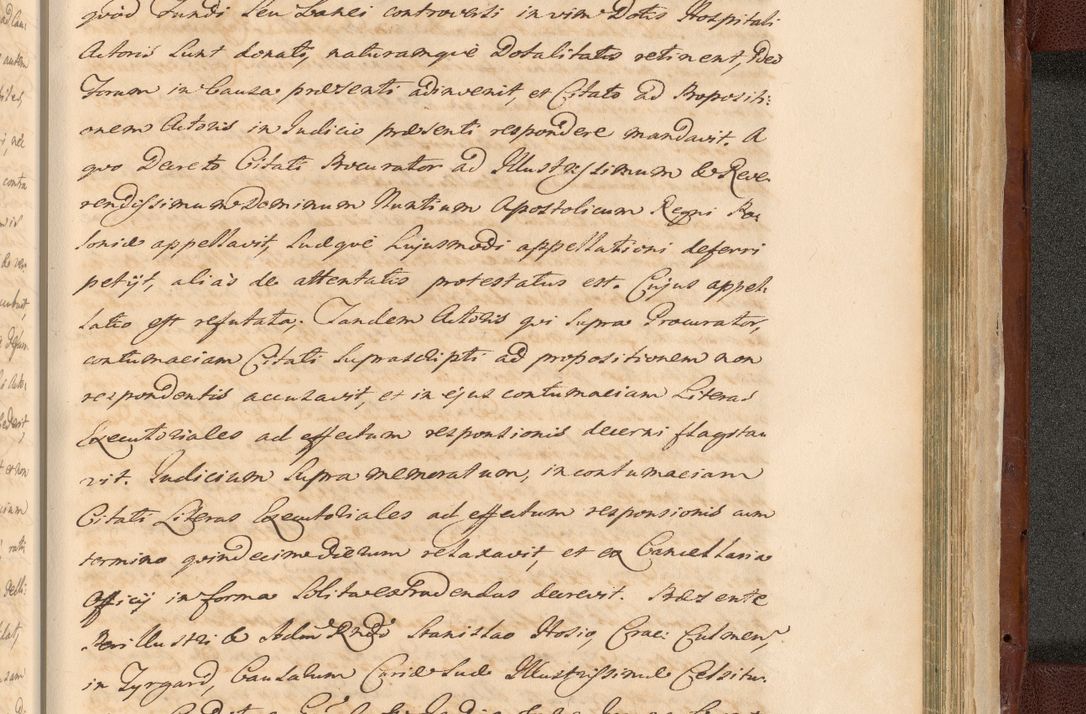 quod Fundi seu Lanei controversi in vim Dotis Hospitali
Actoris sunt donati, naturamque Dotalitatis retinent, Ideo
Forum in Causa præsenti adinvenit, et Citato ad Propositi:
onem Actoris in Judicio præsenti respondere mandavit. A
quo Decreto Citati Procurator ad Illustrissimum & Reve-
rendissimum Dominum Nuntium Apostolicum Regni Po-
loniæ appellavit, suæque hujusmodi appellationi deferri
petijt, alias de attentatis protestatus est. Cujus appel-
latio est refutata. Tandem Actoris qui supra Procurator,
contumaciam Citati suprascripti ad propositionem non
respondentis accusavit, et in ejus contumaciam Literas
Executoriales ad effectum responsionis decerni flagita-
vit. Judicium supra memoratum, in contumaciam
Citati Literas Executoriales ad effectum responsionis cum
termino quindecim dierum relaxavit, et ex Cancellaria
Officij in forma solita extradendas decrevit. Præsente
Perillustri & Adm

 Rndo Stanislao Hosio, Crac: Culmen,
in Tyrgard, Causarum Curiæ suæ Illustrissimæ Celsitu-